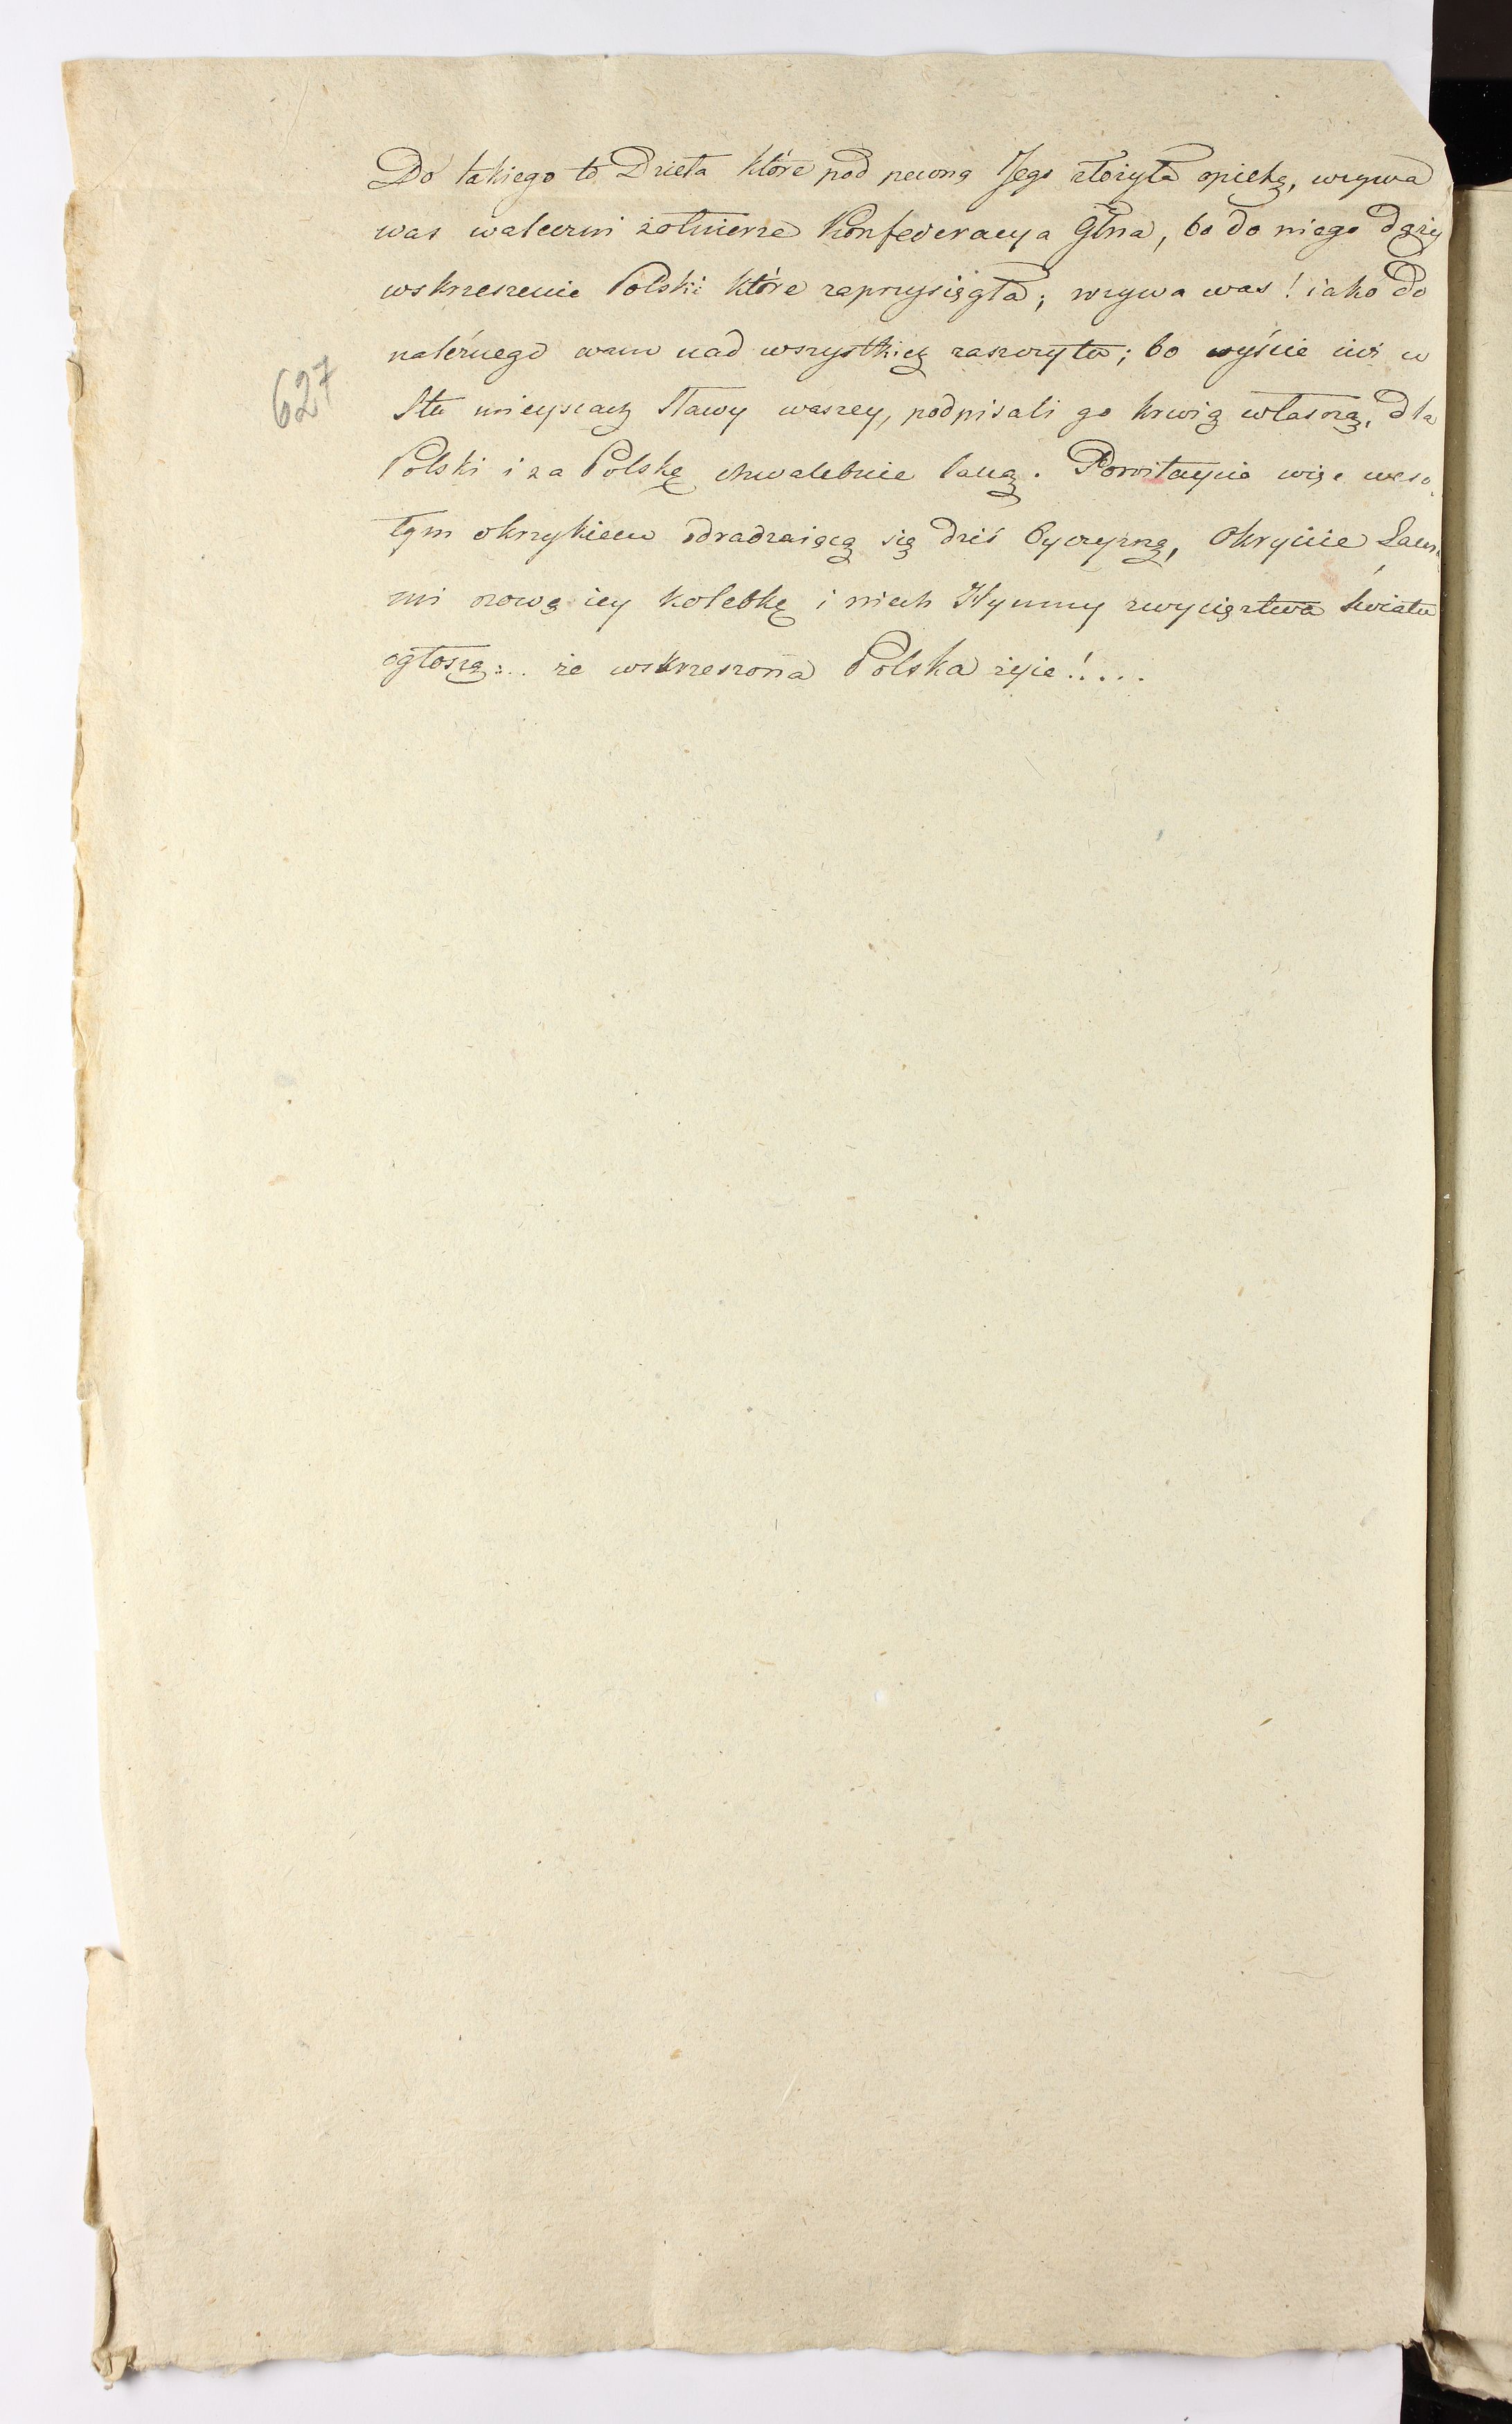 Do takiego to Dzieła które pod pewną Jego złożyła opieką, wzywa
was waleczni żołnierze Konfederacya Głna, bo do niego dąży
wskrzeszenie Polski które zaprzysięgła; wzywa was! iako do
należnego wam nad wszystkich zaszczytu; bo wyście iuż w
627
Stu mieyscach Sławy waszey, podpisali go krwią własną, dla
Polski i za Polskę chwalebnie laną. Powitaycie więc weso-
łym okrzykiem odradzaiącą się dziś Oyczyznę, Okryicie Laura-
mi nową iey kolebkę i niech Hymny zwycięztwa światu
ogłoszą:.. że wskrzeszona Polska żyie!....